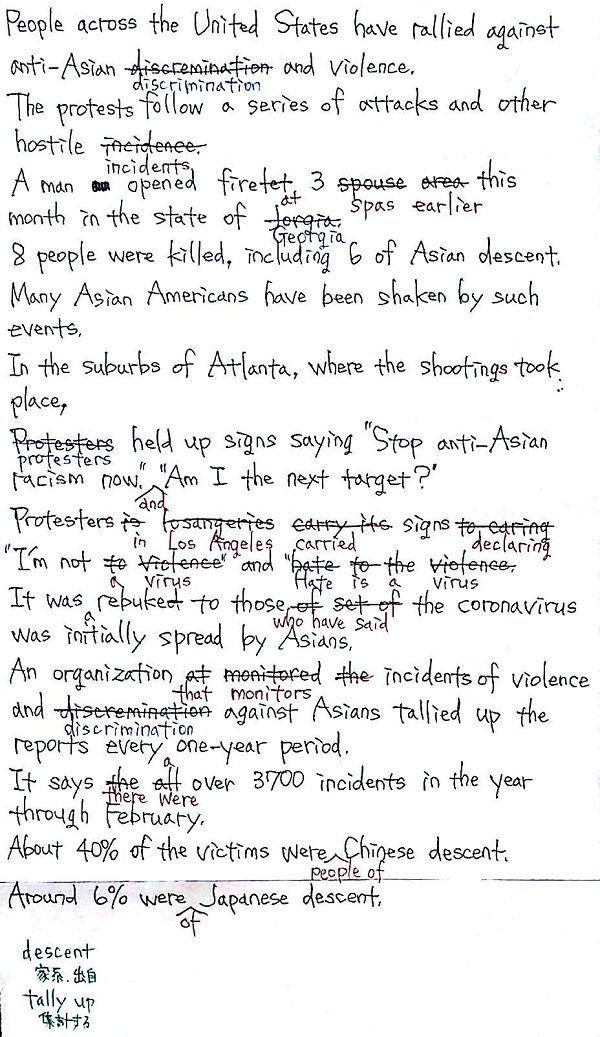 People across the United States have rallied against
anti-Asian discremination and violence.
discrimination
The protests follow a series of attacks and other
hostile incidence.
incidents
A man opened firetet 3 spouse area this
at spas earlier
month in the state of Jorgia.
Georgia
8 people were killed, including 6 of Asian descent.
Many Asian Americans have been shaken by such
events.
In the suburbs of Atlanta, where the shootings took
place,
Protesters held up signs saying "Stop anti-Asian
protesters
racism now." "Am I the next target?"
and
Protesters is losangeries carry its signs to caring
in Los Angeles carried declaring
"I'm not to violence" and "hate to the violence.
a virus Hate is a virus
It was rebuked to those of set of the coronavirus
a who have said
was initially spread by Asians.
An organization at monitored the incidents of violence
that monitors
and discremination against Asians tallied up the
discrimination
reports every one-year period.
a
It says the all over 3700 incidents in the year
there were
through February.
About 40% of the victims were Chinese descent.
people of
Around 6% were Japanese descent.
of
descent
家系.出自
tally up
集計する